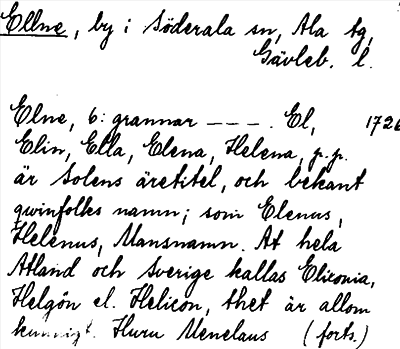 Ellne, by i Söderala sn, Ala tg,
Gävleb. l.
Elne, 6: grannar ---. El, 1726
Elin, Ella, Elena, Helena, p.p.
är Solens äretitel, och bekant
qwinfolks namn; som Elenus,
Helenus, Mansnamn. At hela
Atland och Sverige kallas Eliconia,
Helgön el. Helicon, thet är allom
kunnigt. Huru Menelaus (forts.)